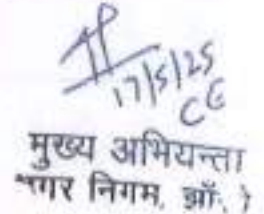 17/5/25
CE
मुख्य अभियन्ता
नगर निगम, झाँ